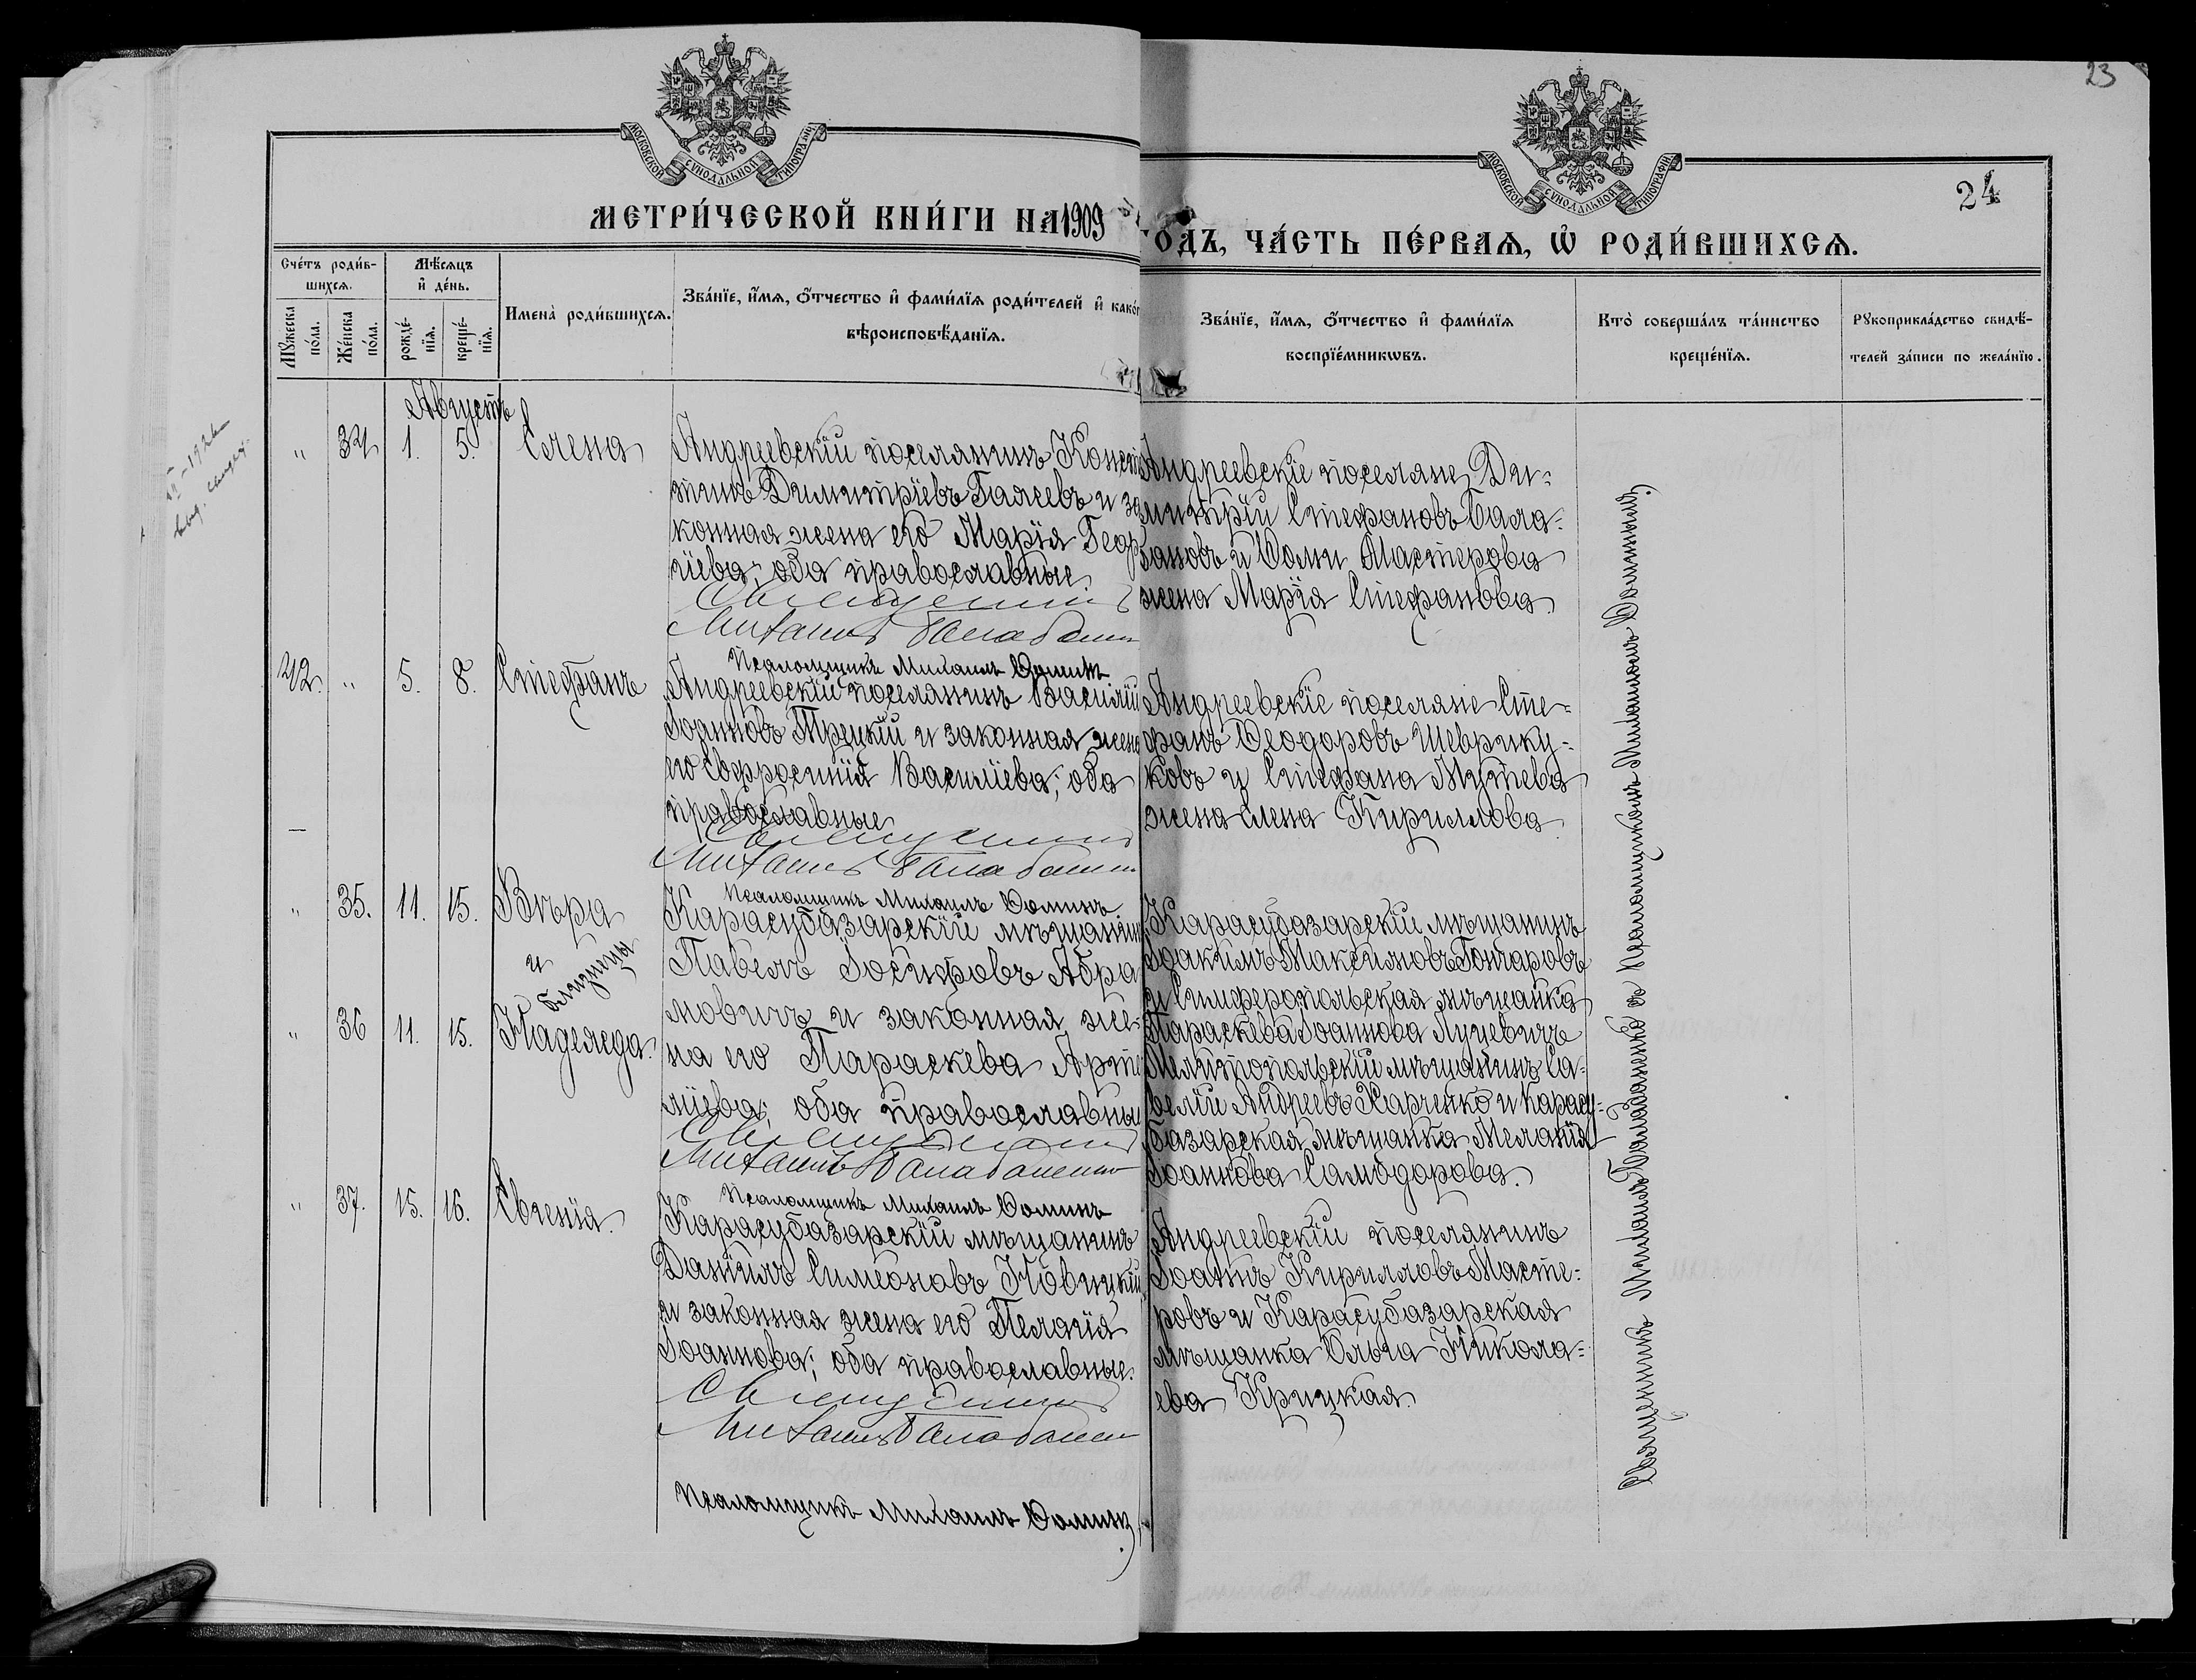 23
24
МОСКОВСКОЙ СѴНОДАЛЬНОЙ ТИПОГРАФІИ
МОСКОВСКОЙ СѴНОДАЛЬНОЙ ТИПОГРАФІИ
МЕТРИ́ЧЕСКОЙ КНИ́ГИ НА 1909
ГОДЪ, ЧА́СТЬ ПЕ́РВАЯ, Ѡ РОДИ́ВШИХСЯ.
Сче́тъ роди́в-
шихся.
Му́жеска по́ла.
Же́нска по́ла.
Мѣ́сяцъ
и де́нь.
рожде́-
нія.
креще́-
нія.
Имена̀ роди́вшихся.
Зва́ніе, и́мя, о́тчество и фами́лія роди́телей и како́
вѣроисповѣ́данія.
Зва́ніе, и́мя, о́тчество и фами́лія
воспріе́мниковъ.
Кто̀ соверша́лъ та́инство
креще́нія.
Рукоприкла́дство свидѣ́-
телей за́писи по жела́нію.
Августъ
" 34 1. 5. Елена
Андреевскій поселянинъ Конст
тинъ Димитріевъ Гаячевъ и за
конная жена его Марія Геор
гіева; оба православные
Священникъ
Михаилъ Балабанен
Псаломщикъ Михаилъ Ѳоминъ
Андреевскіе поселяне Ди-
митрій Стефановъ Бала-
бановъ и Ѳомы Мастерова
жена Марія Стефанова
42. " 5. 8. Стефанъ
Андреевскій поселянинъ Василій
Іоанновъ Трецкій и законная жена
его Евфросинія Васильева; оба
православные
Священникъ
Михаилъ Балабанен
Псаломщикъ Михаилъ Ѳоминъ
Андреевскіе поселяне Сте-
фанъ Ѳеодоровъ Шеврику-
ковъ и Стефана Мутева
жена Елена Кириллова
" 35. 11. 15. Вѣра
и
близнецы
" 36 11. 15. Надежда.
Карасубазарскій мѣщанинъ
Павелъ Іосифовъ Абра
мовичъ и законная же-
на его Параскева Арте
міева; оба православные
Священникъ
Михаилъ Балабаненко
Псаломщикъ Михаилъ Ѳоминъ
Карасубазарскій мѣщанинъ
Іоакимъ Максимовъ Гончаровъ
и Симферопольская мѣщанка
Параскева Іоаннова Луцевичъ
Мелитопольскій мѣщанинъ Са-
велій Андреевъ Харченко и Карасу-
базарская мѣщанка Меланія
Іоаннова Самодорова.
" 37. 15. 16. Евгенія.
Карасубазарскій мѣщанинъ
Даніилъ Симеоновъ Новицкій
и законная жена его Пелагія
Іоаннова; оба православные.
Священникъ
Михаилъ Балабанен
Псаломщикъ Михаилъ Ѳоминъ
Андреевскій поселянинъ
Іоаннъ Кирилловъ Масте-
ровъ и Карасубазарская
мѣщанка Ольга Никола-
ева Крицкая.
Священникъ Михаилъ Балабаненко съ Псаломщикомъ Михаиломъ Ѳоминымъ